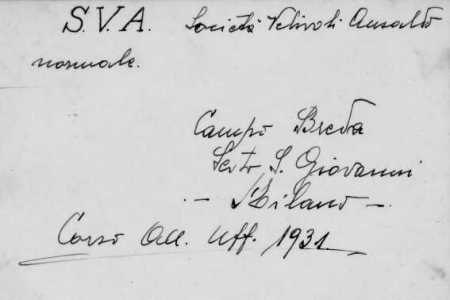 S.V.A. Società Velivoli Ansaldo
normale.
Campo Breda
Sesto S. Giovanni
- Milano -
Corso All. Uff. 1931